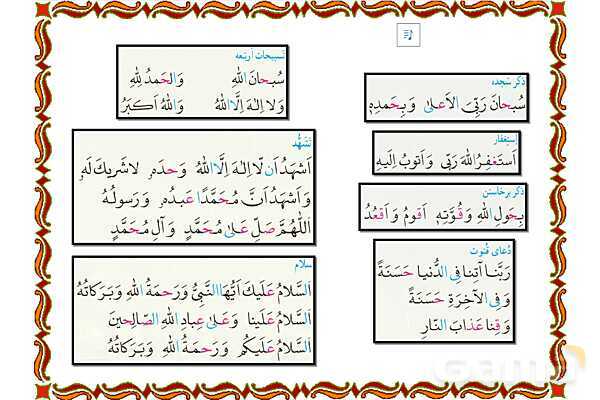 ذکر سجده
سُبحانَ رَبِّیَ الاَعلی وَ بِحَمدِهِ
اِستِغفار
اَستَغفِرُ اللهَ رَبّی وَ اَتوبُ اِلَیهِ
ذکر برخاستن
بِحَولِ اللهِ وَ قُوَّتِهِ اَقومُ وَ اَقعُدُ
دُعای قُنوت
رَبَّنا آتِنا فِی الدُّنیا حَسَنَةً
وَ فِی الآخِرَةِ حَسَنَةً
وَ قِنا عَذابَ النّارِ
تسبیحات اربَعه
سُبحانَ اللهِ وَ الحَمدُ لِلّهِ
وَ لا اِلهَ اِلَّا اللهُ وَ اللهُ اَکبَرُ
تَشَهُّد
اَشهَدُ اَن لا اِلهَ اِلَّا اللهُ وَحدَهُ لا شَریكَ لَهُ
وَ اَشهَدُ اَنَّ مُحَمَّدًا عَبدُهُ وَ رَسولُهُ
اَللّهُمَّ صَلِّ عَلی مُحَمَّدٍ وَ آلِ مُحَمَّدٍ
سلام
اَلسَّلامُ عَلَیكَ اَیُّهَا النَّبِیُّ وَ رَحمَةُ اللهِ وَ بَرَکاتُهُ
اَلسَّلامُ عَلَینا وَ عَلی عِبادِ اللهِ الصّالِحینَ
اَلسَّلامُ عَلَیکُم وَ رَحمَةُ اللهِ وَ بَرَکاتُهُ